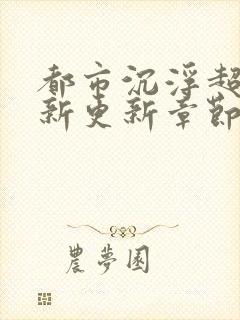 都市沉浮超
新更新章節
農夢園